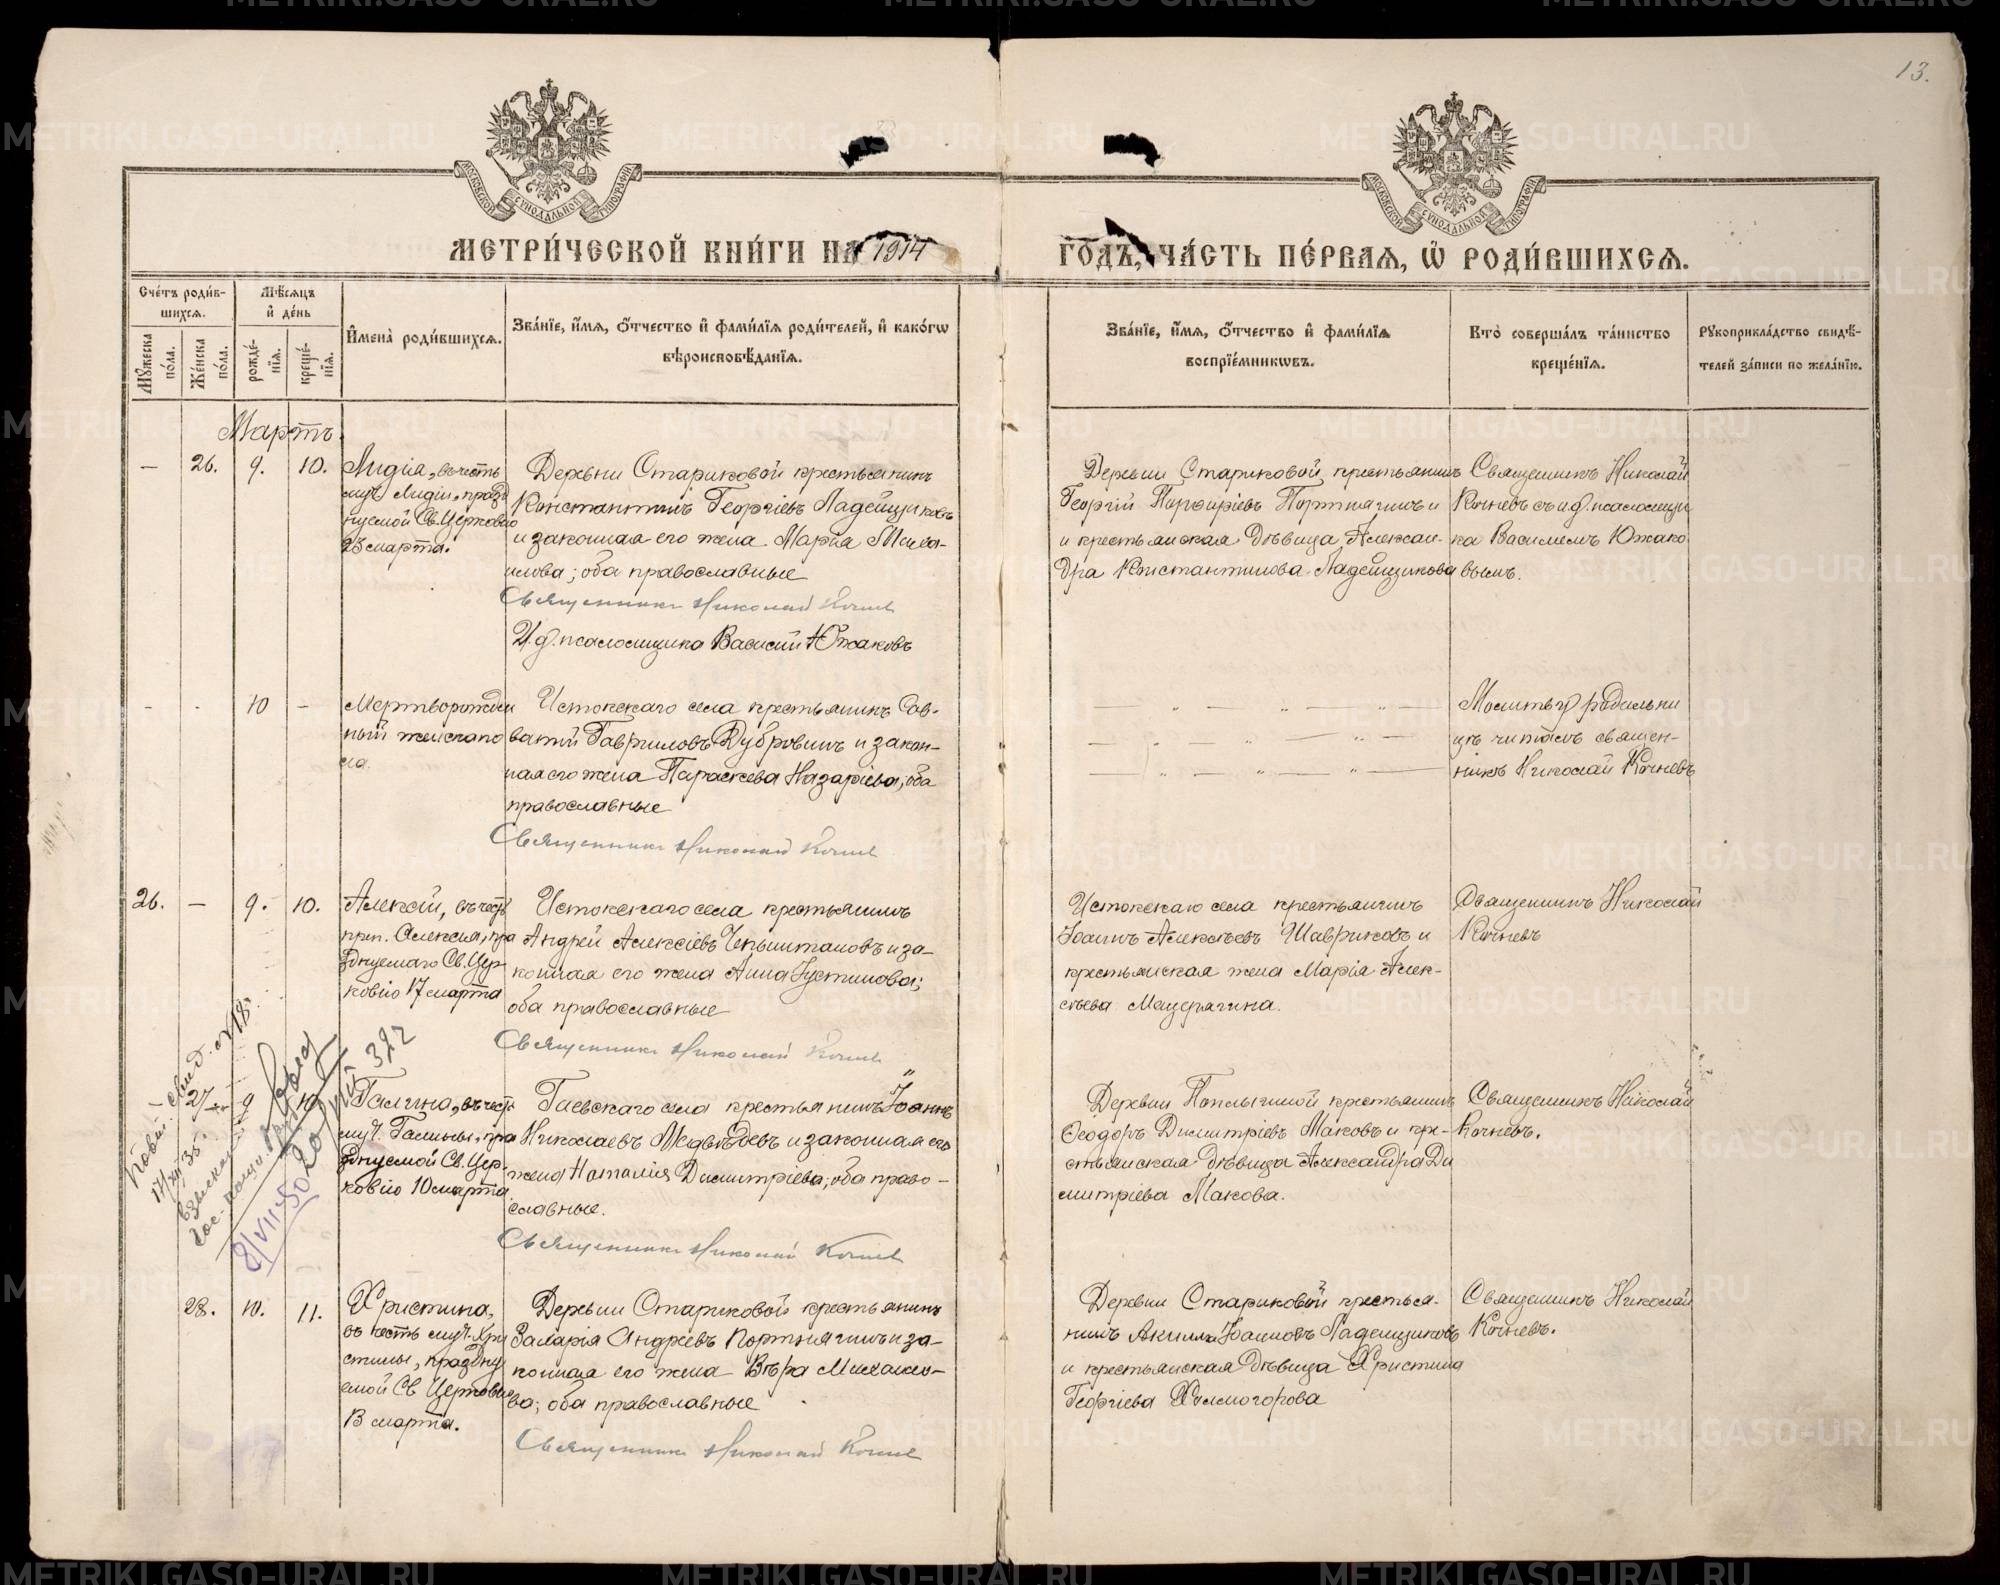 13.
МЕТРИ́ЧЕСКОЙ КНИ́ГИ НА 1914 ГО́ДЪ, ЧА́СТЬ ПЕ́РВАѦ, Ѡ҆ РОДИ́ВШИХСѦ.
МОСКОВСКОЙ СѴНОДАЛЬНОЙ ТИПОГРАФІИ
МОСКОВСКОЙ СѴНОДАЛЬНОЙ ТИПОГРАФІИ
Сче́тъ роди́вшихсѧ.
Мѣ́сѧцъ и҆ де́нь
Мꙋ́жеска по́ла.
Же́нска по́ла.
рожде́нїѧ.
креще́нїѧ.
И҆мена̀ роди́вшихсѧ.
Зва́нїе, и҆́мѧ, ѻ҆́тчество и҆ фами́лїѧ роди́телей, и҆ како́гѡ
вѣроисповѣ́данїѧ.
Зва́нїе, и҆́мѧ, ѻ҆́тчество и҆ фами́лїѧ
воспрїе́мникѡвъ.
Кто̀ соверша́лъ та́инство
креще́нїѧ.
Рꙋкоприкла́дство свидѣ́-
телей за́писи по жела́нїю.
Мартъ.
— 26. 9. 10.
Лидія, въ честь
муч. Лидіи, празд
нуемой Св. Церковію
23 марта.
Деревни Стариковой крестьянинъ
Константинъ Георгіевъ Ладейщиковъ
и законная его жена Марія
; оба православные
Священникъ Николай Кочневъ
И. д. псаломщика Василій Южаковъ
Деревни Стариковой крестьянинъ
Георгій Порфиріевъ Портнягинъ и
и крестьянская дѣвица Алексан-
дра Константинова Ладейщикова
Священникъ Николай
Кочневъ съ и. д. псаломщи
ка Василіемъ Южако
вымъ.
- - 10 -
Мертворожден
ный женскаго по
ла.
Истокскаго села крестьянинъ Сав-
ватій Гавриловъ Дубровинъ и закон-
ная его жена Параскева Назаріева; оба
православные
Священникъ Николай Кочневъ
Молитву родильни
цѣ читалъ священ-
никъ Николай Кочневъ
26. — 9. 10.
Алексій, въ честь
преп. Алексія, пра
зднуемаго Св. Цер
ковію 17 марта
Истокскаго села крестьянинъ
Андрей Алексіевъ и за-
конная его жена Анна Іустинова;
оба православные
Священникъ Николай Кочневъ
Истокскаго села крестьянинъ
Іоаннъ Алексѣевъ Шавриковъ и
крестьянская жена Марія Алек-
сѣева Мащерягина.
Священникъ Николай
Кочневъ
27 9 10
Галина, въ честь
муч. Галины, пра
зднуемой Св. Цер-
ковію 10 марта
Гаевскаго села крестьянинъ Іоаннъ
Николаевъ Медвѣдевъ и законная его
жена Наталія Димитріева; оба право-
славные.
Священникъ Николай Кочневъ
Деревни крестьянинъ
Ѳеодоръ Димитріевъ Маковъ и кре-
стьянская дѣвица Александра Ди
митріева Макова.
Священникъ Николай
Кочневъ.
28. 10. 11.
Христина,
въ честь муч. Хри
стины, праздну
емой Св Церковію
13 марта.
Деревни Стариковой крестьянинъ
Захарія Андреевъ Портнягинъ и за-
конная его жена Вѣра Михаило-
ва; оба православные
Священникъ Николай Кочневъ
Деревни Стариковой крестья-
нинъ Акилла Іоанновъ Ладейщиковъ
и крестьянская дѣвица Христина
Георгіева Холмогорова
Священникъ Николай
Кочневъ.